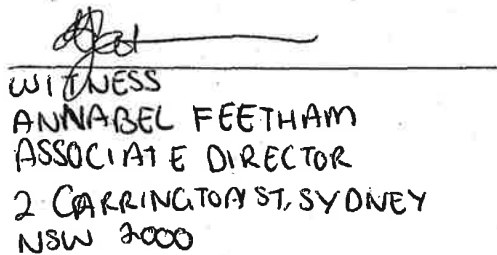 WITNESS
ANNABEL FEETHAM
ASSOCIATE DIRECTOR
2 CARRINGTON ST, SYDNEY
NSW 2000